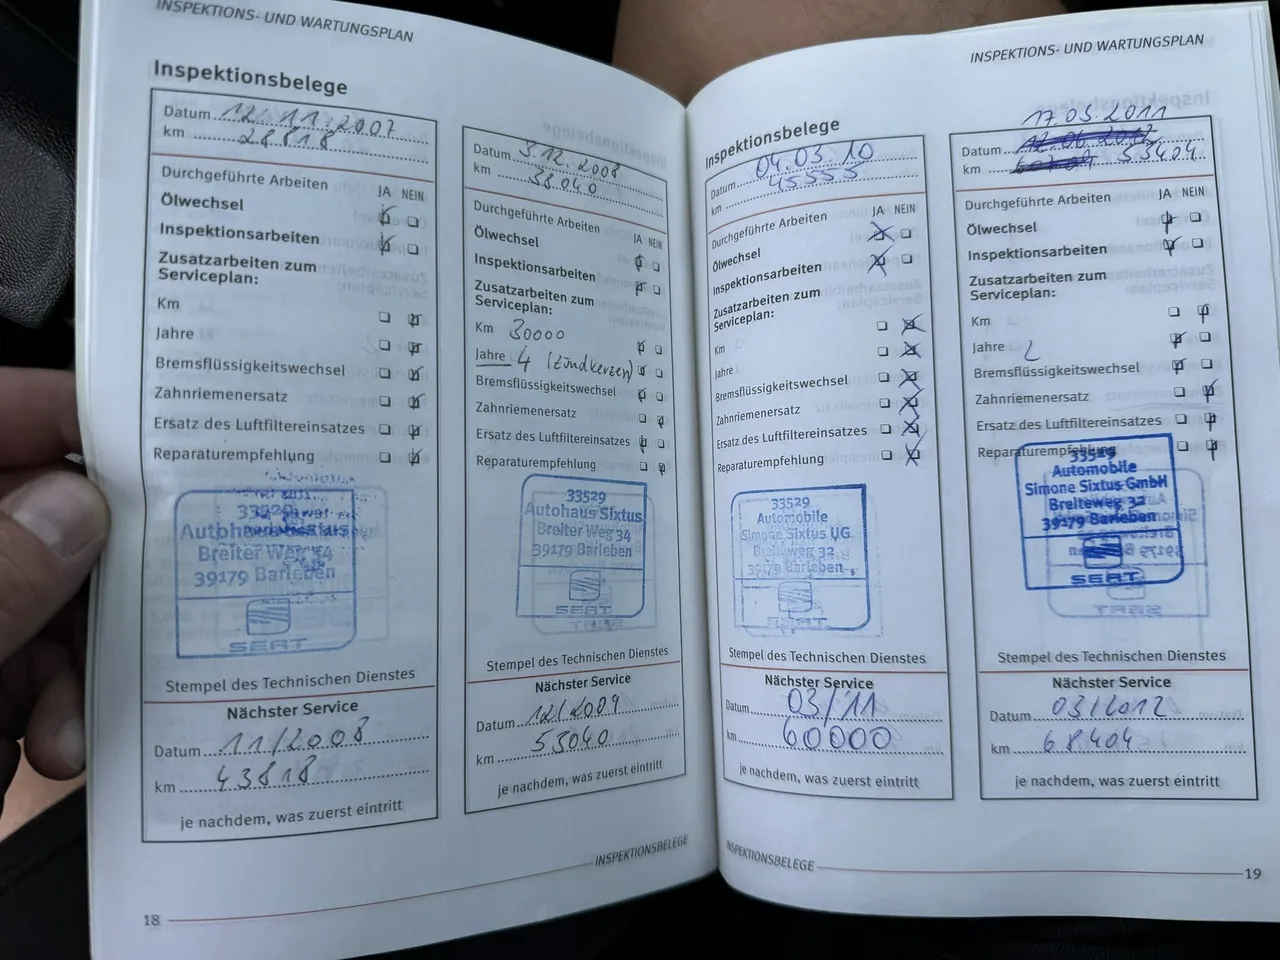 INSPEKTIONS- UND WARTUNGSPLAN
Inspektionsbelege
Datum 12.11.2007
km 28818
Durchgeführte Arbeiten JA NEIN
Ölwechsel
Inspektionsarbeiten
Zusatzarbeiten zum
Serviceplan:
Km
Jahre
Bremsflüssigkeitswechsel
Zahnriemenersatz
Ersatz des Luftfiltereinsatzes
Reparaturempfehlung
33529
Autohaus Sixtus
Breiter Weg 34
39179 Barleben
SEAT
Stempel des Technischen Dienstes
Nächster Service
Datum 11/2008
km 43818
je nachdem, was zuerst eintritt
18
Datum 3.12.2008
km 38040
Durchgeführte Arbeiten JA NEIN
Ölwechsel
Inspektionsarbeiten
Zusatzarbeiten zum
Serviceplan:
Km 30000
Jahre 4 (Zündkerzen)
Bremsflüssigkeitswechsel
Zahnriemenersatz
Ersatz des Luftfiltereinsatzes
Reparaturempfehlung
33529
Autohaus Sixtus
Breiter Weg 34
39179 Barleben
SEAT
Stempel des Technischen Dienstes
Nächster Service
Datum 12/2009
km 53040
je nachdem, was zuerst eintritt
INSPEKTIONSBELEGE
INSPEKTIONS- UND WARTUNGSPLAN
Inspektionsbelege
Datum 04.03.10
km 45555
Durchgeführte Arbeiten JA NEIN
Ölwechsel
Inspektionsarbeiten
Zusatzarbeiten zum
Serviceplan:
Km
Jahre
Bremsflüssigkeitswechsel
Zahnriemenersatz
Ersatz des Luftfiltereinsatzes
Reparaturempfehlung
33529
Automobile
Simone Sixtus UG
Breiteweg 32
39179 Barleben
SEAT
Stempel des Technischen Dienstes
Nächster Service
Datum 03/11
km 60000
je nachdem, was zuerst eintritt
INSPEKTIONSBELEGE
17.03.2011
Datum
km 53404
Durchgeführte Arbeiten JA NEIN
Ölwechsel
Inspektionsarbeiten
Zusatzarbeiten zum
Serviceplan:
Km
Jahre 2
Bremsflüssigkeitswechsel
Zahnriemenersatz
Ersatz des Luftfiltereinsatzes
Reparaturempfehlung
33529
Automobile
Simone Sixtus GmbH
Breiteweg 32
39179 Barleben
SEAT
Stempel des Technischen Dienstes
Nächster Service
Datum 03/2012
km 68404
je nachdem, was zuerst eintritt
19